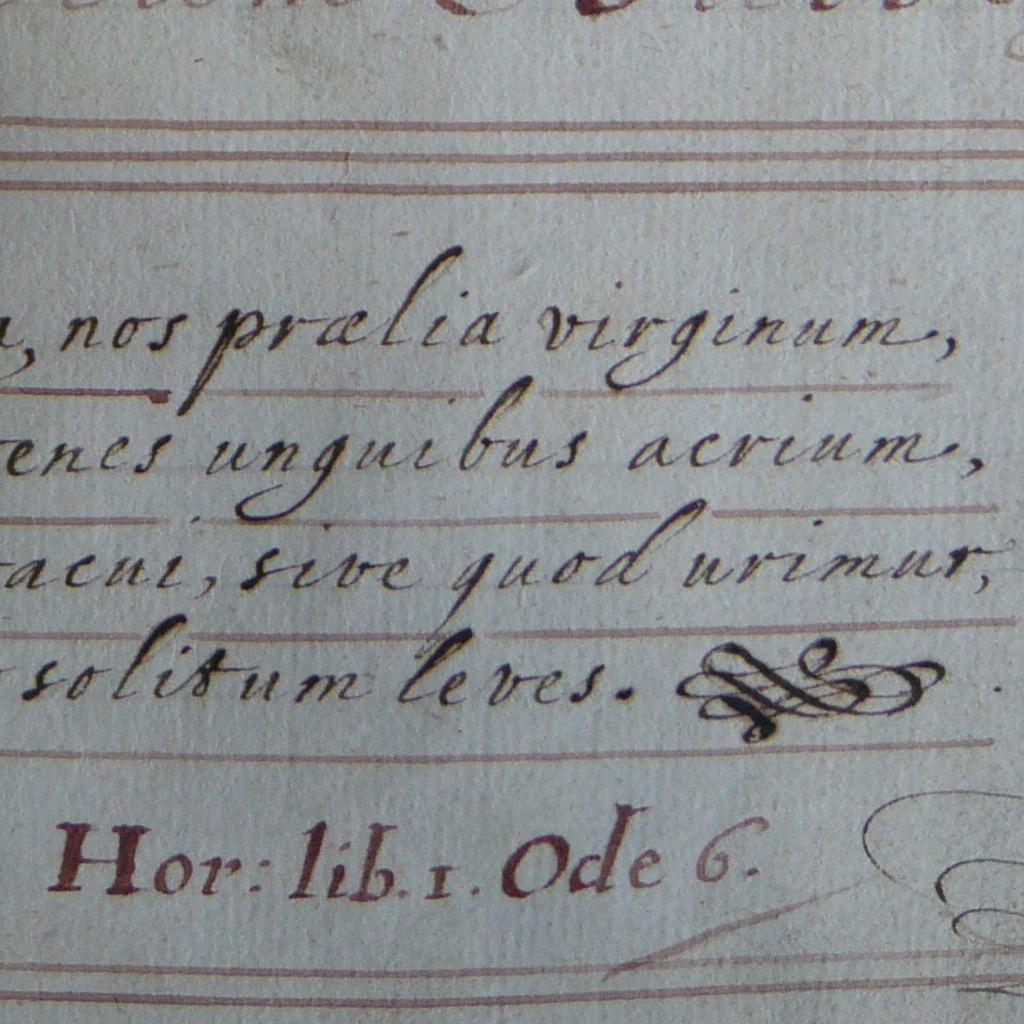 nos prælia virginum,
unguibus acrium,
sive quod urimur,
solitum leves.
Hor: lib. 1. Ode 6.